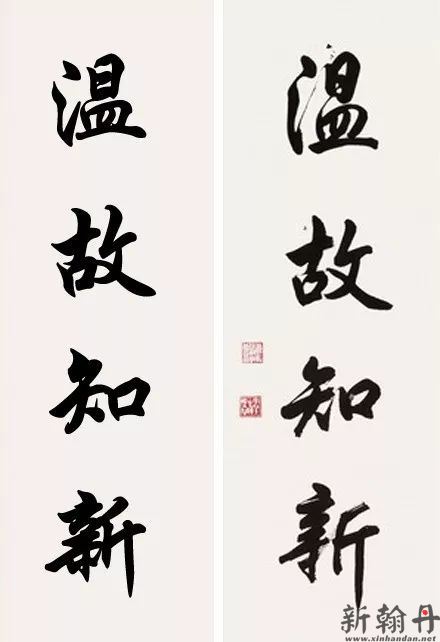 温故知新
温故知新
新翰丹
www.xinhandan.net